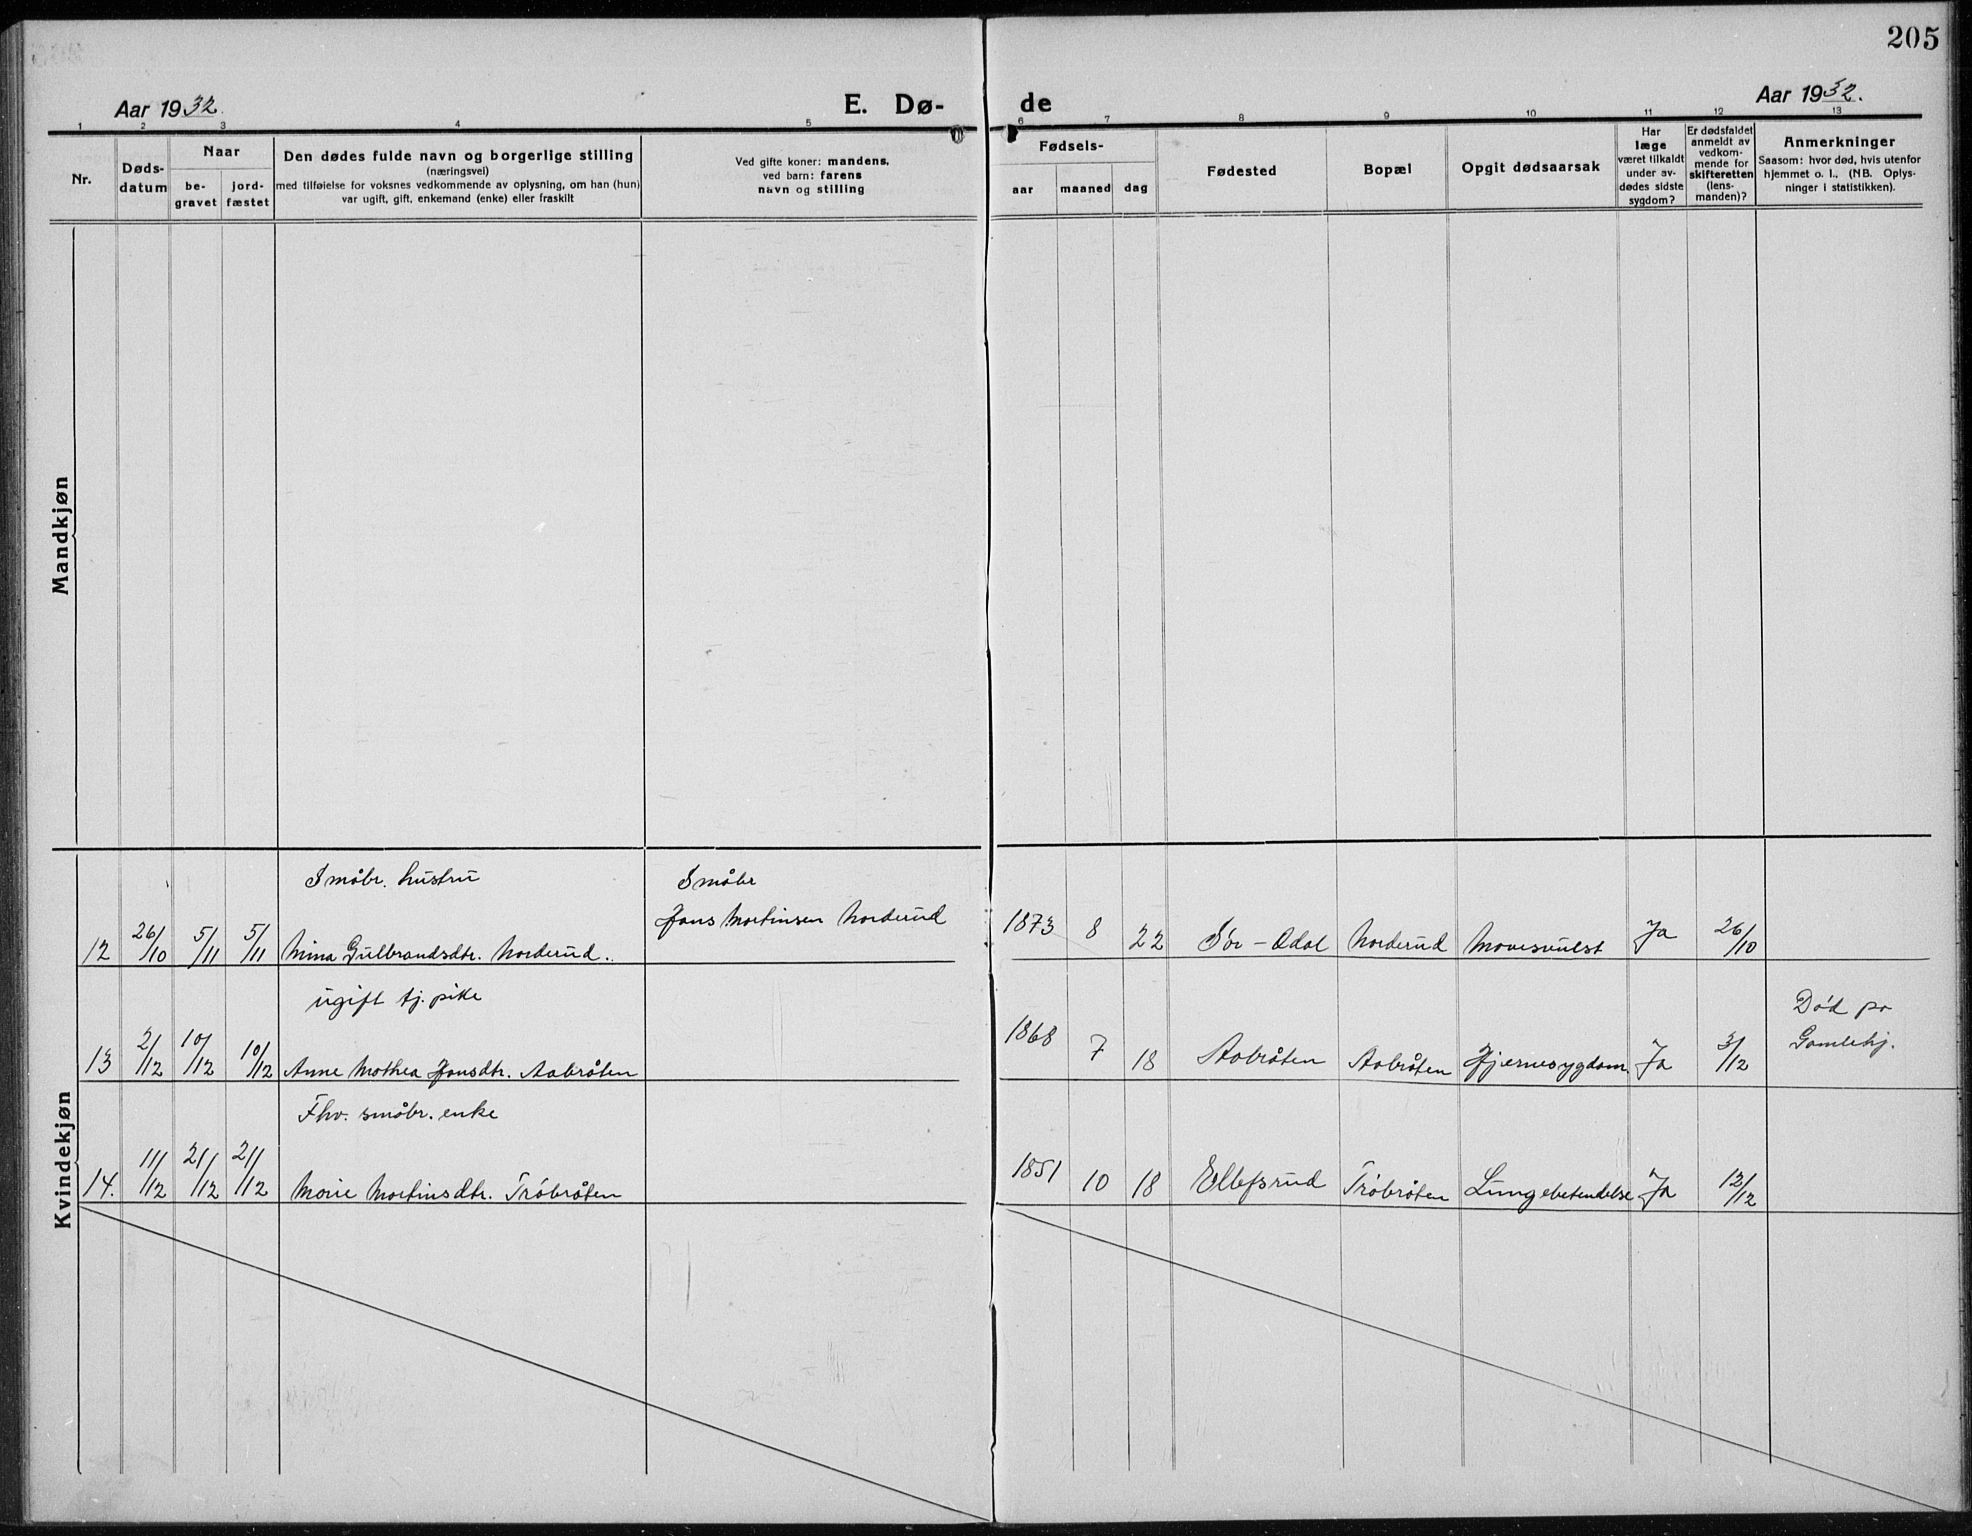 205
Aar 1932.
E. Dø-
de
Aar 1932.
1 2 3 4 5 6 7 8 9 10 11 12 13
Nr.
Døds-
datum
Naar
be-
gravet
jord-
fæstet
Den dødes fulde navn og borgerlige stilling
(næringsvei)
med tilføielse for voksnes vedkommende av oplysning, om han (hun)
var ugift, gift, enkemand (enke) eller fraskilt
Ved gifte koner: mandens,
ved barn: farens
navn og stilling
Fødsels-
aar maaned dag
Fødested
Bopæl
Opgit dødsaarsak
Har
læge
været tilkaldt
under av-
dødes sidste
sygdom?
Er dødsfaldet
anmeldt av
vedkom-
mende for
skifteretten
(lens-
manden)?
Anmerkninger
Saasom: hvor død, hvis utenfor
hjemmet o. l., (NB. Oplys-
ninger i statistikken).
Mandkjøn
Kvindekjøn
Småbr. hustru Småbr
Hans Martinsen Norderud
12 26/10 5/11 5/11 Mina Gulbrandsdtr. Norderud. 1873 8 22 Sør-Odal Norderud Mavesvulst Ja 26/10
ugift tj. pike Død pa
Gamlehj.
13 2/12 10/12 10/12 Anne Mathea Hansdtr. Aabråten 1868 7 18 Aabråten Aabråten Hjernesygdom. Ja 3/12
Fhv. småbr. enke
14. 11/12 21/12 21/12 Marie Martinsdtr. Tråbråten 1851 10 18 Ellefsrud Tråbråten Lungebetendelse Ja 12/12